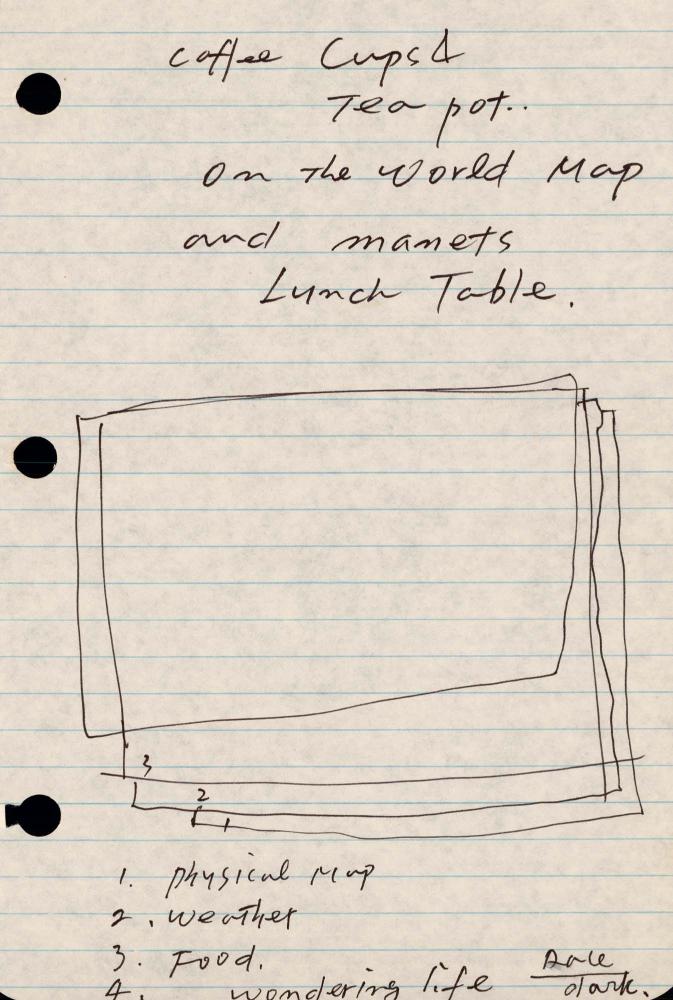 coffee Cups &
Tea pot..
On The World Map
and manets
Lunch Table.
3
2
1
1. physical Map
2. weather
3. Food.
4. wondering life
dark.